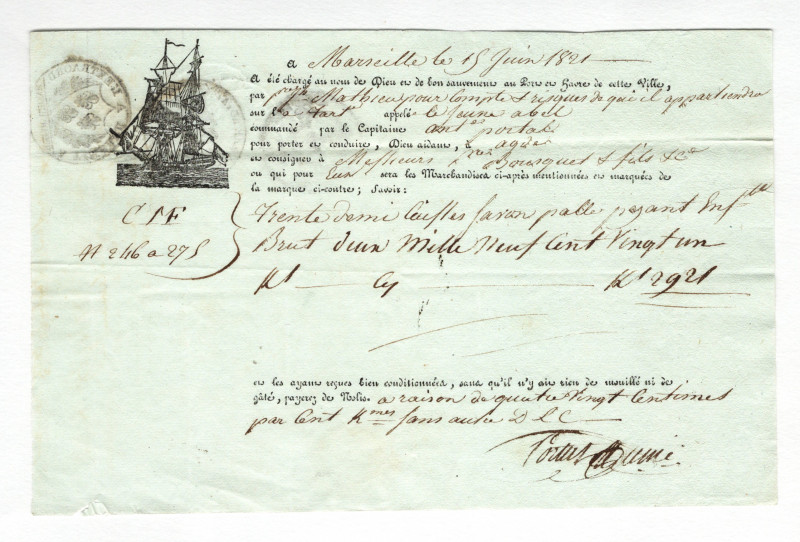 A Marseille le 15 Juin 1821
A été chargé au nom de Dieu et de bon sauvement au Port et Havre de cette Ville,
par Mathieu pour Compte & risques de qui il appartiendra
sur l'a tart^e appelé le jeune abel
commandé par le Capitaine ant^e portal
pour porter et conduire, Dieu aidant, à agde
et consigner à Messieurs Bousquet & fils & C^e
ou qui pour Eux sera les Marchandises ci-après mentionnées et marquées de
la marque ci-contre; Savoir:
Trente demi Caisses Savon palle pezant Ens^lle
N 246 a 275
Brut deux Mille Neuf Cent Vingt un
K^s Cy K^s 2921
et les ayant reçues bien conditionnées, sans qu'il n'y ait rien de mouillé ni de
gâté, payerez de Nolis. a raison de quatre Vingt Centimes
par Cent K^mes sans autre